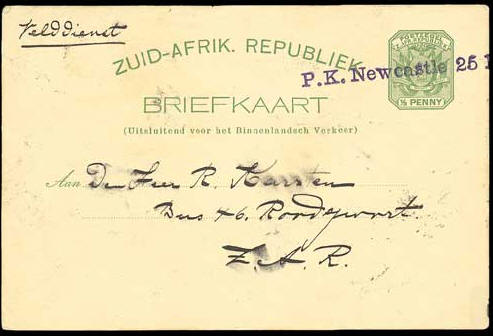 Velddienst
ZUID-AFRIK. REPUBLIEK.
P.K. Newcastle 25
BRIEFKAART
½ PENNY
(Uitsluitend voor het Binnenlandsch Verkeer)
Aan Den Heer R. Karsten
Bus 46. Roodepoort.
Z.A.R.